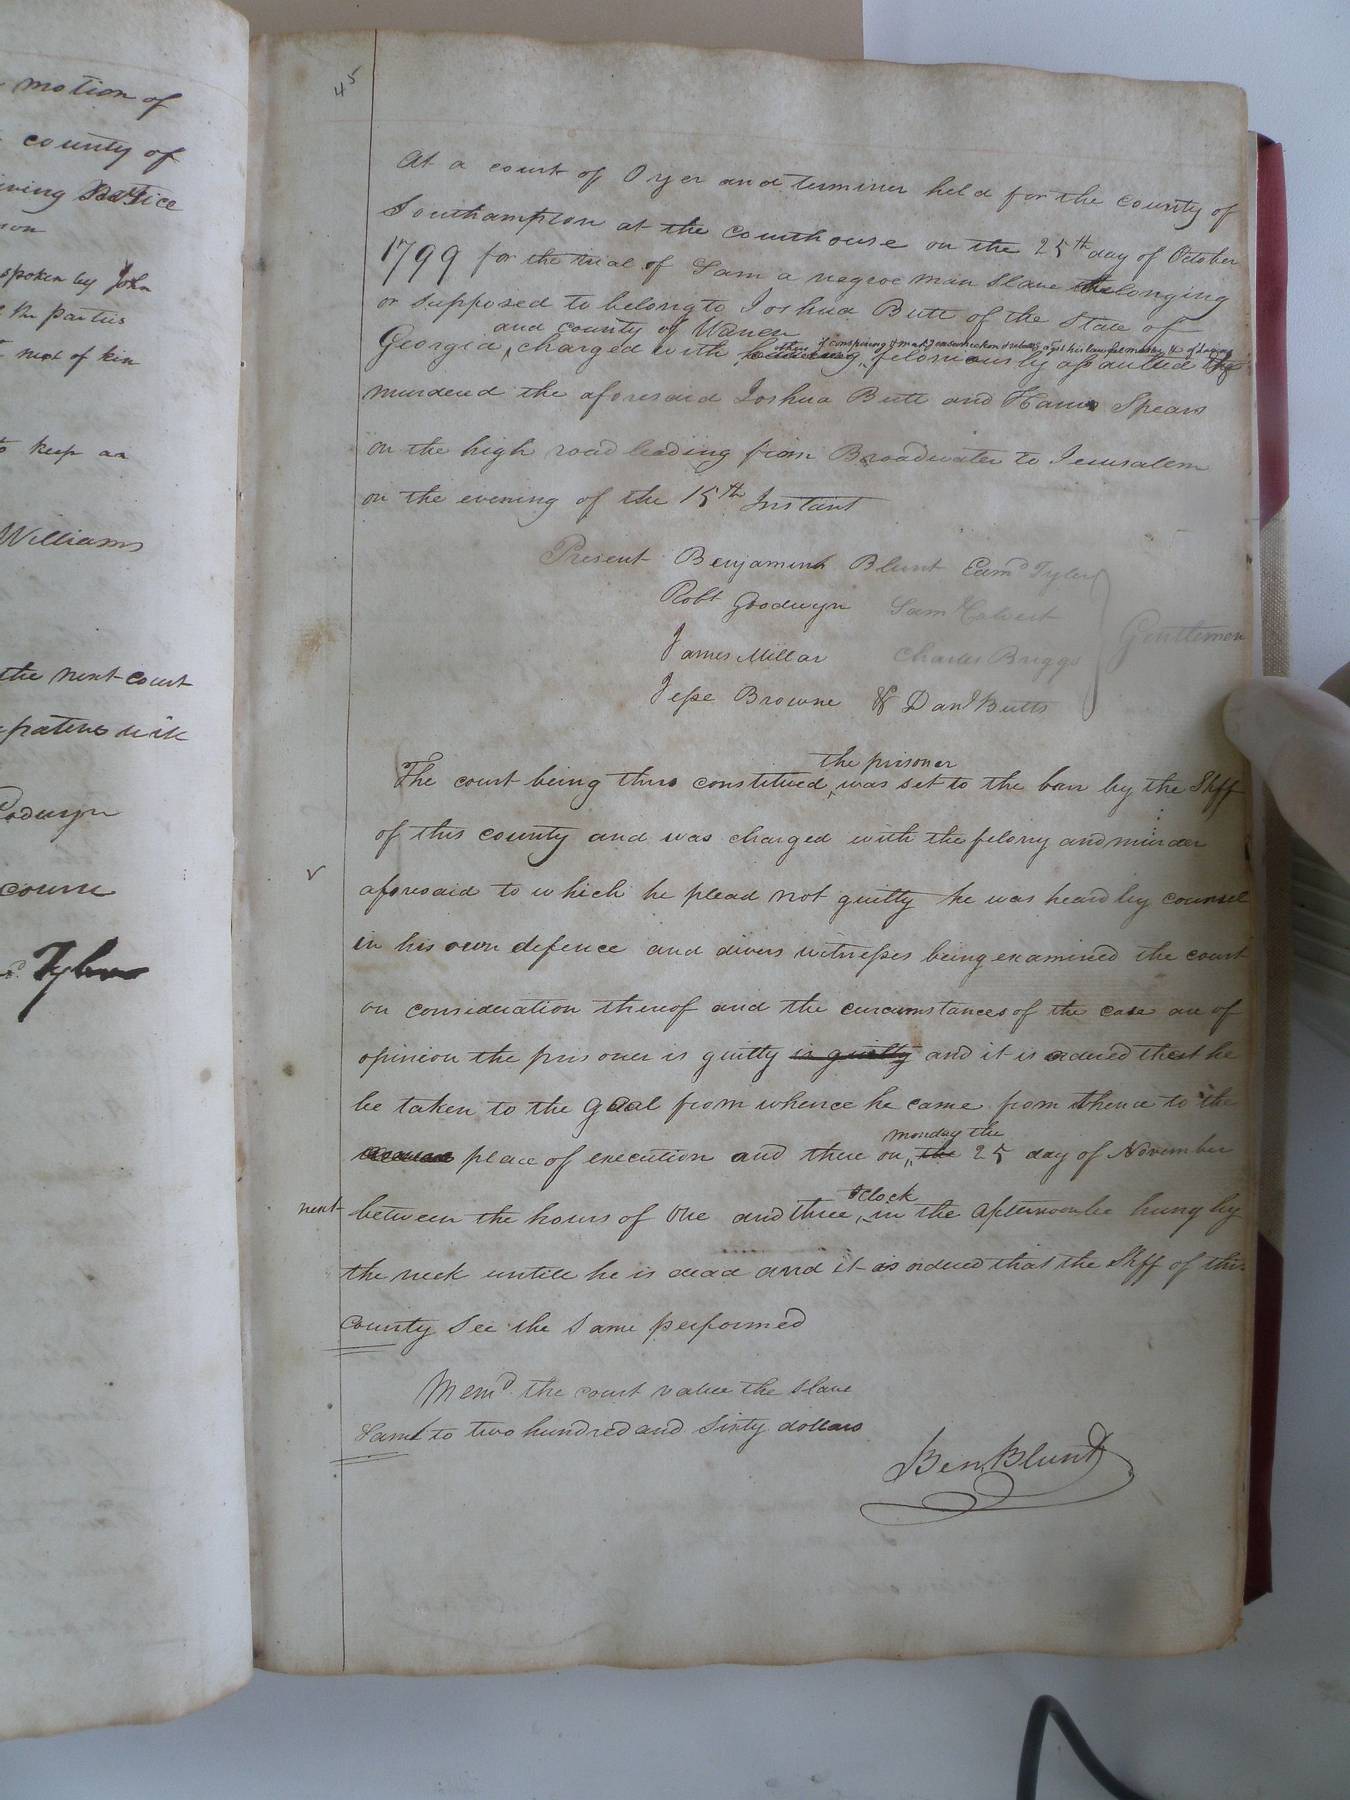 motion of
county of
spoken by John
the parties
next of kin
to keep an
Williams
the next court
45
At a court of Oyer and terminer held for the county of
Southampton at the courthouse on the 25th day of October
1799 for the trial of Sam a negroe man slave belonging
or supposed to belong to Joshua Butt of the State of
and county of Warren
Georgia, charged with feloniously assaulted
murdered the aforesaid Joshua Butt and Harris Spears
on the high road leading from Broadwater to Jerusalem
on the evening of the 15th Instant
Present Benjamin Blunt Edmd Tyler
Robt Goodwyn Saml Calvert
James Millar Charles Briggs Gentlemen
Jesse Browne & Danl Butts
the prisoner
The court being thus constituted, was set to the barr by the Shff
of this county and was charged with the felony and murder
aforesaid to which he plead not guilty he was heard by counsel
in his own defence and divers witnesses being examined the court
on consideration thereof and the circumstances of the case are of
opinion the prisoner is guilty is guilty and it is ordered that he
be taken to the goal from whence he came from thence to the
place of execution and there on, the 25 day of November
monday the
next between the hours of One and three, in the afternoon be hung by
oClock
the neck untill he is dead and it is ordered that the Shff of this
county See the Same performed
Memd. the court value the slave
Sam to two hundred and Sixty dollars
Ben. Blunt